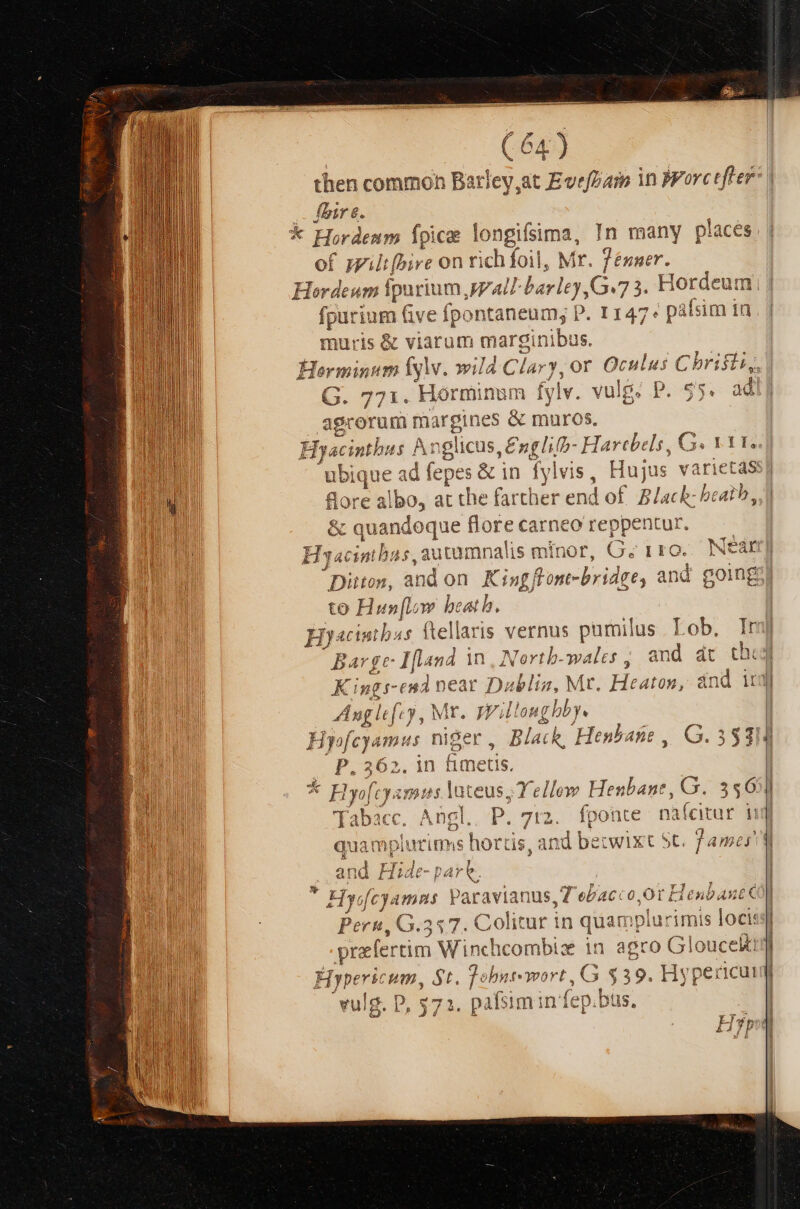 (64)
then common Barley,at Eveſham in Worceſter-
ſhire.
* Hordeum ſpicæ longiſsima, In many places
of Wiltſhire on rich ſoil, Mr. Jenner.
Hordeum ſpurium,Wall-barley,G.73. Hordeum
ſpurium ſive ſpontaneum; P. 1147. paſsim in
muris & viarum marginibus.
Horminum ſylv. wild Clary, or Oculus Christi,
G. 771. Horminum ſylv. vulg. P. 55. ad
agrorum margines & muros.
Hyacinthus Anglicus, Engliſh-Harebels, G. 111.
ubique ad ſepes & in ſylvis, Hujus varietas
flore albo, at the farther end of Black-heath,
& quandoque flore carneo reppentur.
Hyacinthus, autumnalis minor, G. 110. Near
Ditton, and on Kingſtone-bridge, and going
to Hunſlow heath.
Hyacinthus ſtellaris vernus pumilus Lob. In
Barge-Iſland in North-wales; and at the
Kings-end near Dublin, Mr. Heaton, and in
Angleſey, Mr. Willoughby.
Hyoſcyamus niger, Black Henbane, G. 353
P. 362. in fimetis.
* Hyoſcyamus luteus, Yellow Henbane, G. 356
Tabacc. Angl. P. 712. ſponte naſcitur in
quamplurimis hortis, and betwixt St. James
and Hide-park.
* Hyoſcyamns Paravianus, Tobacco, or Henbane
Peru, G.357. Colitur in quamplurimis locis
præſertim Winchcombiæ in agro Glouceſt
Hypericum, St. Johns-wort, G 539. Hypericum
vulg. P, 572. paſsim in ſep.bus.
Hype